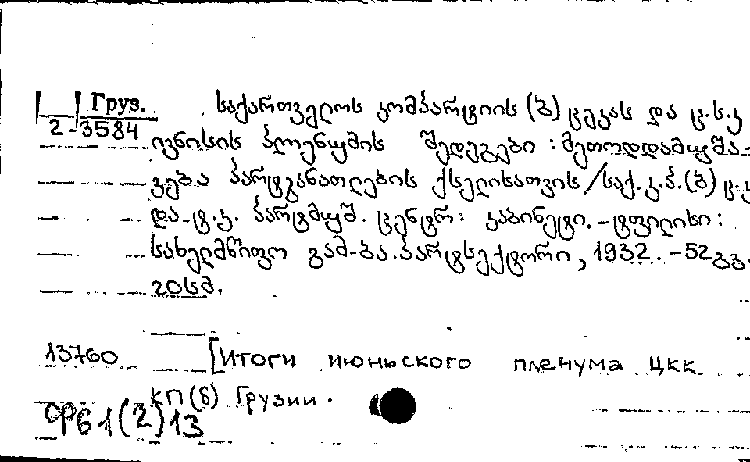 Груз.
2-3584
საქართველოს კომპარტიის (ბ) ცეკას და ც.ს.კ
ივნისის პლენუმის შედეგები : მეთოდდამუშა-
ვება პარტგანათლების ქსელისათვის / საქ. კ. პ. (ბ) ც.კ
და ტ. კ. პარტმუშ. ცენტრ: კაბინეტი. - ტფილისი :
სახელმწიფო გამ-ბა. პარტსექტორი, 1932. - 52 გვ.
20სმ.
13760 [Итоги июньского пленума ЦКК
КП(б) Грузии.
ср61(2)13